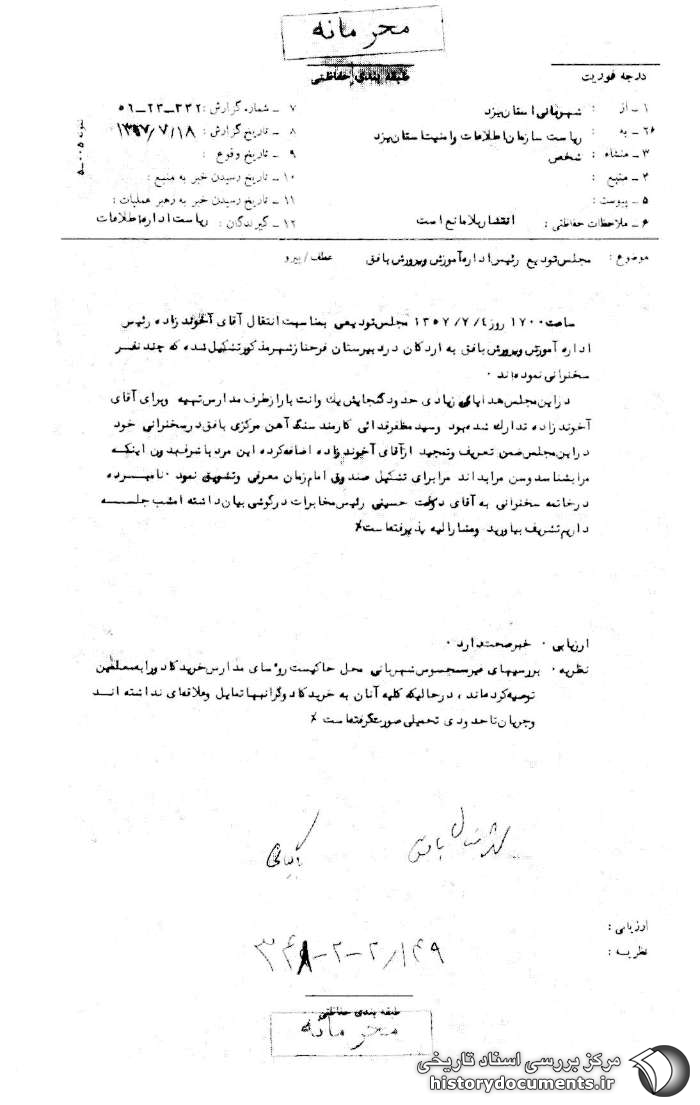 محرمانه
طبقه بندی حفاظتی
درجه فوریت
۱ - از : شهربانی استان یزد
۲ - به : ریاست سازمان اطلاعات و امنیت استان یزد
۳ - منشاء : شخص
۴ - منبع :
۵ - پیوست :
۶ - ملاحظات حفاظتی : انتشار بلامانع است
۷ - شماره گزارش : ۳۳۲-۲۳-۵۶
۸ - تاریخ گزارش : ۱۳۵۷/۷/۱۸
۹ - تاریخ وقوع :
۱۰ - تاریخ رسیدن خبر به منبع :
۱۱ - تاریخ رسیدن خبر به رهبر عملیات :
۱۲ - گیرندگان : ریاست اداره اطلاعات
نمونه ۰۰۵-۵
موضوع : مجلس تودیع رئیس اداره آموزش و پرورش بافق عطف / پیرو
ساعت ۱۷۰۰ روز ۱۳۵۷/۷/۴ مجلس تودیعی بمناسبت انتقال آقای آخوند زاده رئیس
اداره آموزش و پرورش بافق به اردکان در دبیرستان فرحناز شهر مذکور تشکیل شده که چند نفر
سخنرانی نموده اند ۰
در این مجلس هدایای زیادی حدود گنجایش یک وانت بار از طرف مدارس تهیه وبرای آقای
آخوند زاده تدارک شده بود وسید مظفر فدائی کارمند سنگ آهن مرکزی بافق در سخنرانی خود
در این مجلس ضمن تعریف وتمجید از آقای آخوند زاده اضافه کرده این مرد با شرف بدون اینکه
مرا بشناسد ومن مرا بداند مرا برای تشکیل صندوق امام زمان معرفی وتشویق نمود ۰ نامبرده
در خاتمه سخنرانی به آقای دولت حسینی رئیس مخابرات در گوشی بیان داشته امشب جلسه
داریم تشریف بیاورید ومشارالیه پذیرفته است ٪
ارزیابی ۰ خبر صحت دارد ۰
نظریه ۰ بررسیهای غیر محسوس شهربانی محل حاکیست روسای مدارس خرید کادو را به معلمین
توصیه کرده اند ، در حالیکه کلیه آنان به خرید کادو گرانبها تمایل وعلاقه ای نداشته اند
وجریان تا حدودی تحمیلی صورت گرفته است ٪
بافق
ارزیابی :
نظریه :
۳۴۸-۲-۲/۱۴۹
طبقه بندی حفاظتی
محرمانه
مرکز بررسی اسناد تاریخی
historydocuments.ir